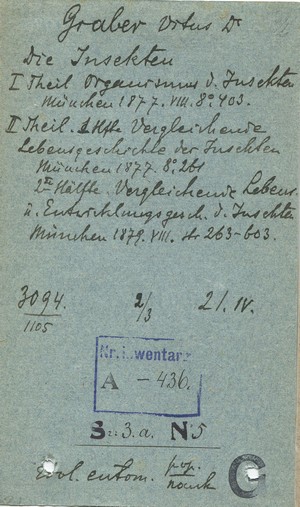 Graber Vitus Dr
Die Insekten
I Theil Organismus d. Insekten
München 1877. VIII. 8º 403.
II Theil. 1 Hfte Vergleichende
Lebensgeschichte der Insekten
München 1877. 8º, 261
2te Hälfte. Vergleichende Lebens.
u. Entwicklungsgesch. d. Insekten
München 1879. VIII. str 263-603.
3094. 2/3 21. IV.
1105
Nr. inwentarz
A - 436.
S: 3.a. N 5
Evol. entom. pop.
nauk C